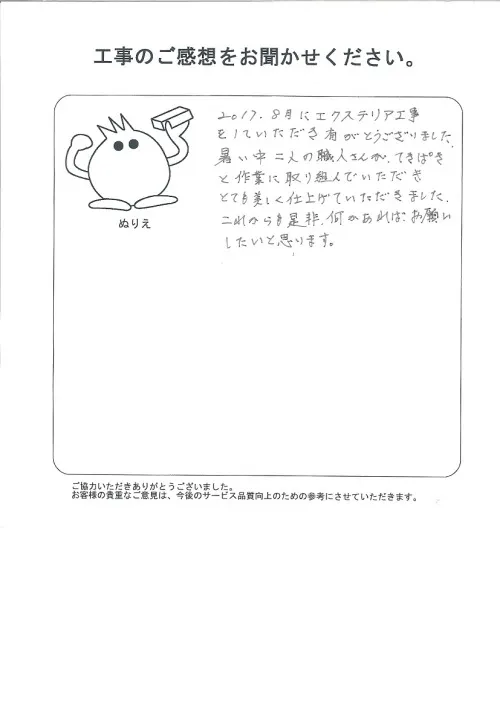 工事のご感想をお聞かせください。
2017.8月にエクステリア工事
をしていただき有がとうございました。
暑い中二人の職人さんが、てきぱき
と作業に取り組んでいただき
とても美しく仕上げていただきました。
これからも是非、何かあれば、お願い
したいと思います。
ぬりえ
ご協力いただきありがとうございました。
お客様の貴重なご意見は、今後のサービス品質向上のための参考にさせていただきます。